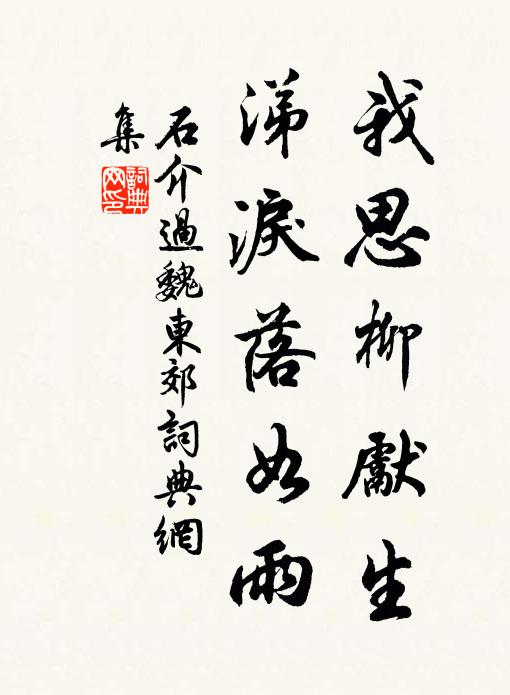 我思柳獻生
涕淚落如雨
石介過魏東郊詞典網
集
詞典網印